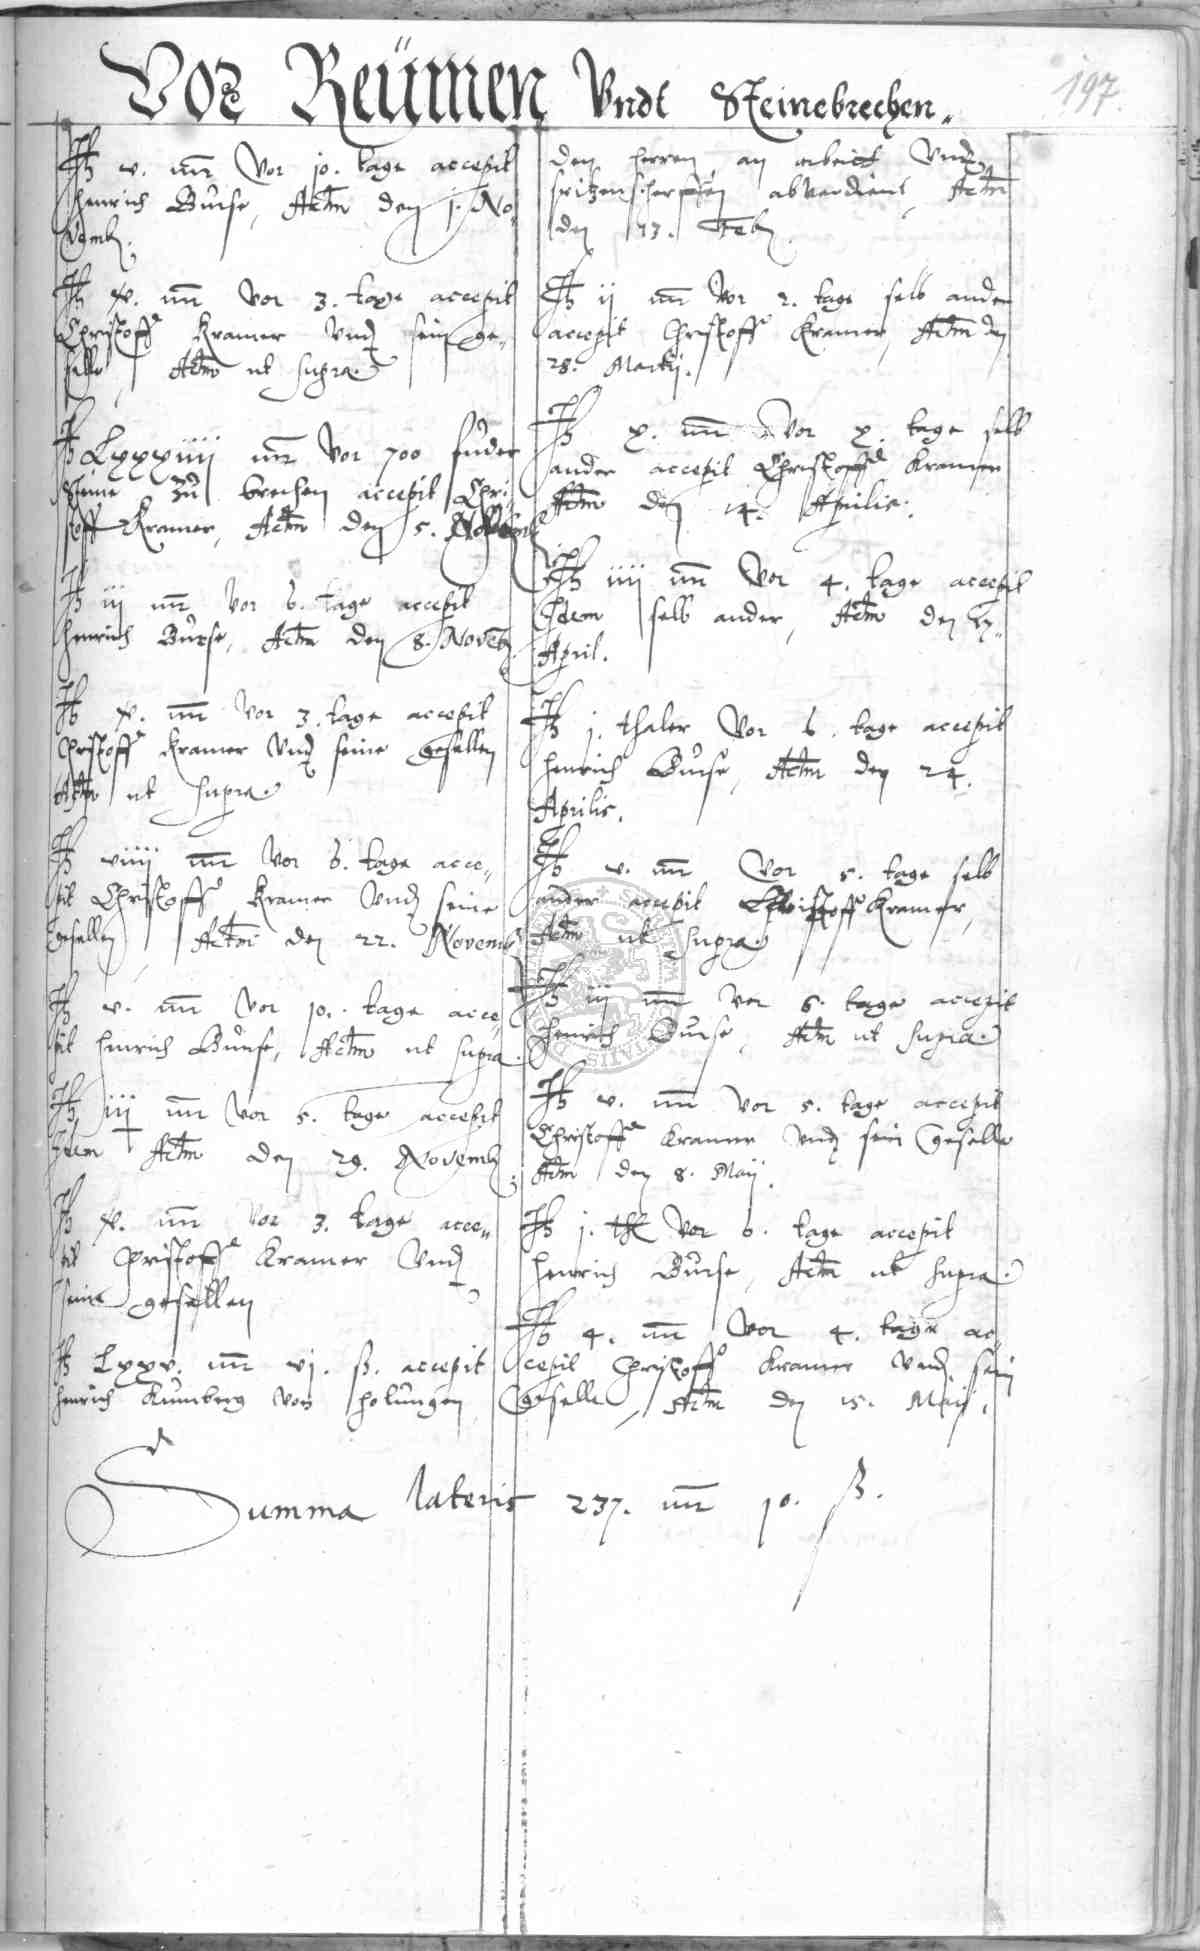 197.
Vor Reümen Vndt Steinebrechen.
It v. mr Vor 10. tage accepit
Henrich Burse, Actm den 1. No-
vemb.
It x. mr Vor 3. tage accepit
Christoff Kramer Vnd sein ge-
selle, Actm ut supra.
It Lxxxiiii mr Vor 700 fuder
steine zu brechen accepit Chri-
stoff Kramer, Actm den 5. Novemb
It iii mr Vor 6. tage accepit
Henrich Burse, Actm den 8. Novemb.
It x. mr Vor 3. tage accepit
Christoff Kramer Vnd seine gesellen
Actm ut supra.
It viiii mr Vor 6. tage acce-
pit Christoff Kramer Vnd seine
gesellen, Actm den 22. Novemb
It v. mr Vor 10. tage acce-
pit Henrich Burse, Actm ut supra.
It iii mr Vor 5. tage accepit
Idem Actm den 29. Novemb.
It x. mr Vor 3. tage acce-
pit Christoff Kramer Vnd
seine gesellen
It Lxxv. mr vj. ß. accepit
Henrich Kumberg von Holungen
den herren an arbeit Vnd
spitzenscherffen abverdient, Actm
den 13. Feb.
It ii mr Vor 2. tage selb ander
accepit Christoff Kramer, Actm den
28. Martij.
It x. mr Vor x. tage selb
ander accepit Christoff Kramer
Actm den 14. Aprilis.
It iiii mr Vor 4. tage accepit
Idem selb ander, Actm den
April.
It j. thaler Vor 6. tage accepit
Henrich Burse, Actm den 24.
Aprilis.
It v. mr Vor 5. tage selb
ander accepit Christoff Kramer,
Actm ut supra.
It iii mr Vor 6. tage accepit
Henrich Burse, Actm ut supra.
It v. mr Vor 5. tage accepit
Christoff Kramer Vnd sein geselle
Actm den 8. Maij.
It j. thl Vor 6. tage accepit
Henrich Burse, Actm ut supra.
It 4. mr Vor 4. tage ac-
cepit Christoff Kramer Vnd sein
geselle, Actm den 15. Maij.
Summa lateris 237. mr 10. ß.